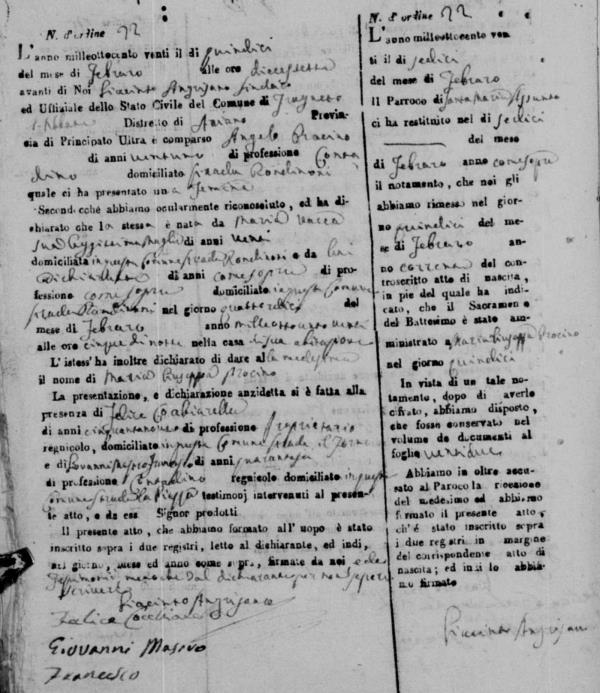 N. d'ordine 22
L'anno milleottocento venti il di quindici
del mese di Febraro alle ore diecessette
avanti di Noi Giacinto Angrisano Sindaco
ed Uffiziale dello Stato Civile del Comune di
Distretto di Ariano Provin-
cia di Principato Ultra è comparso Angelo Procino
di anni ventuno di professione Conta
dino domiciliato Strada Rondinoni
quale ci ha presentato una femina
Secondocchè abbiamo ocularmente riconosciuto, ed ha di-
chiarato che la stessa è nata da Maria Vacca
sua leggittima moglie di anni venti
domiciliata in questa Comune strada Rondinoni e da lui
Dichiarante di anni come sopra di pro-
fessione come sopra domiciliato in questa Comune
strada Rondinoni nel giorno quattordici del
mese di Febraro anno milleottocento venti
alle ore cinque di notte nella casa di sua abitazione
L'istess'ha inoltre dichiarato di dare alla medesima
il nome di Maria Giuseppa Procino
La presentazione, e dichiarazione anzidetta si è fatta alla
presenza di Felice
di anni cinquantanove di professione Proprietario
regnicolo, domiciliato in questa Comune strada il Forno
e di Giovanni Masivo Francesco di anni quaranta
di professione regnicolo domiciliato in questa
Comune strada la Piazza testimonj intervenuti al presen-
te atto, e da esa Signor prodotti
Il presente atto, che abbiamo formato all' uopo è stato
inscritto sopra i due registri, letto al dichiarante, ed indi,
nel giorno, mese ed anno come sopra, firmate da noi e da
testimonii meno che dal dichiarante per non sapere
scrivere
Giacinto Angrisano
Felice
Giovanni Masivo
Francesco
N. d'ordine 22
L'anno milleottocento ven
ti il di sedici
del mese di Febraro
Il Parroco di Santa Maria Assunta
ci ha restituito nel di sedici
del mese
di Febraro anno come sopra
il notamento, che noi gli
abbiamo rimesso nel gior-
no quindici del me-
se di Febraro an-
no corrente del con-
troscritto atto di nascita,
in pie del quale ha indi-
cato, che il Sacramen-
del Battesimo è stato am-
ministrato a Maria Giuseppa Procino
nel giorno quindici
In vista di un tale no-
tamento, dopo di averlo
cifrato, abbiamo disposto,
che fosse conservato nel
volume de documenti al
foglio ventidue
Abbiamo in oltre accu-
sato al Paroco la ricezione
del medesimo ed abbiamo
formato il presente atto,
ch'è stato inscritto sopra
i due registri in margine
del corrispondente atto di
nascita; ed indi lo abbia-
mo firmato
Giacinto Angrisano